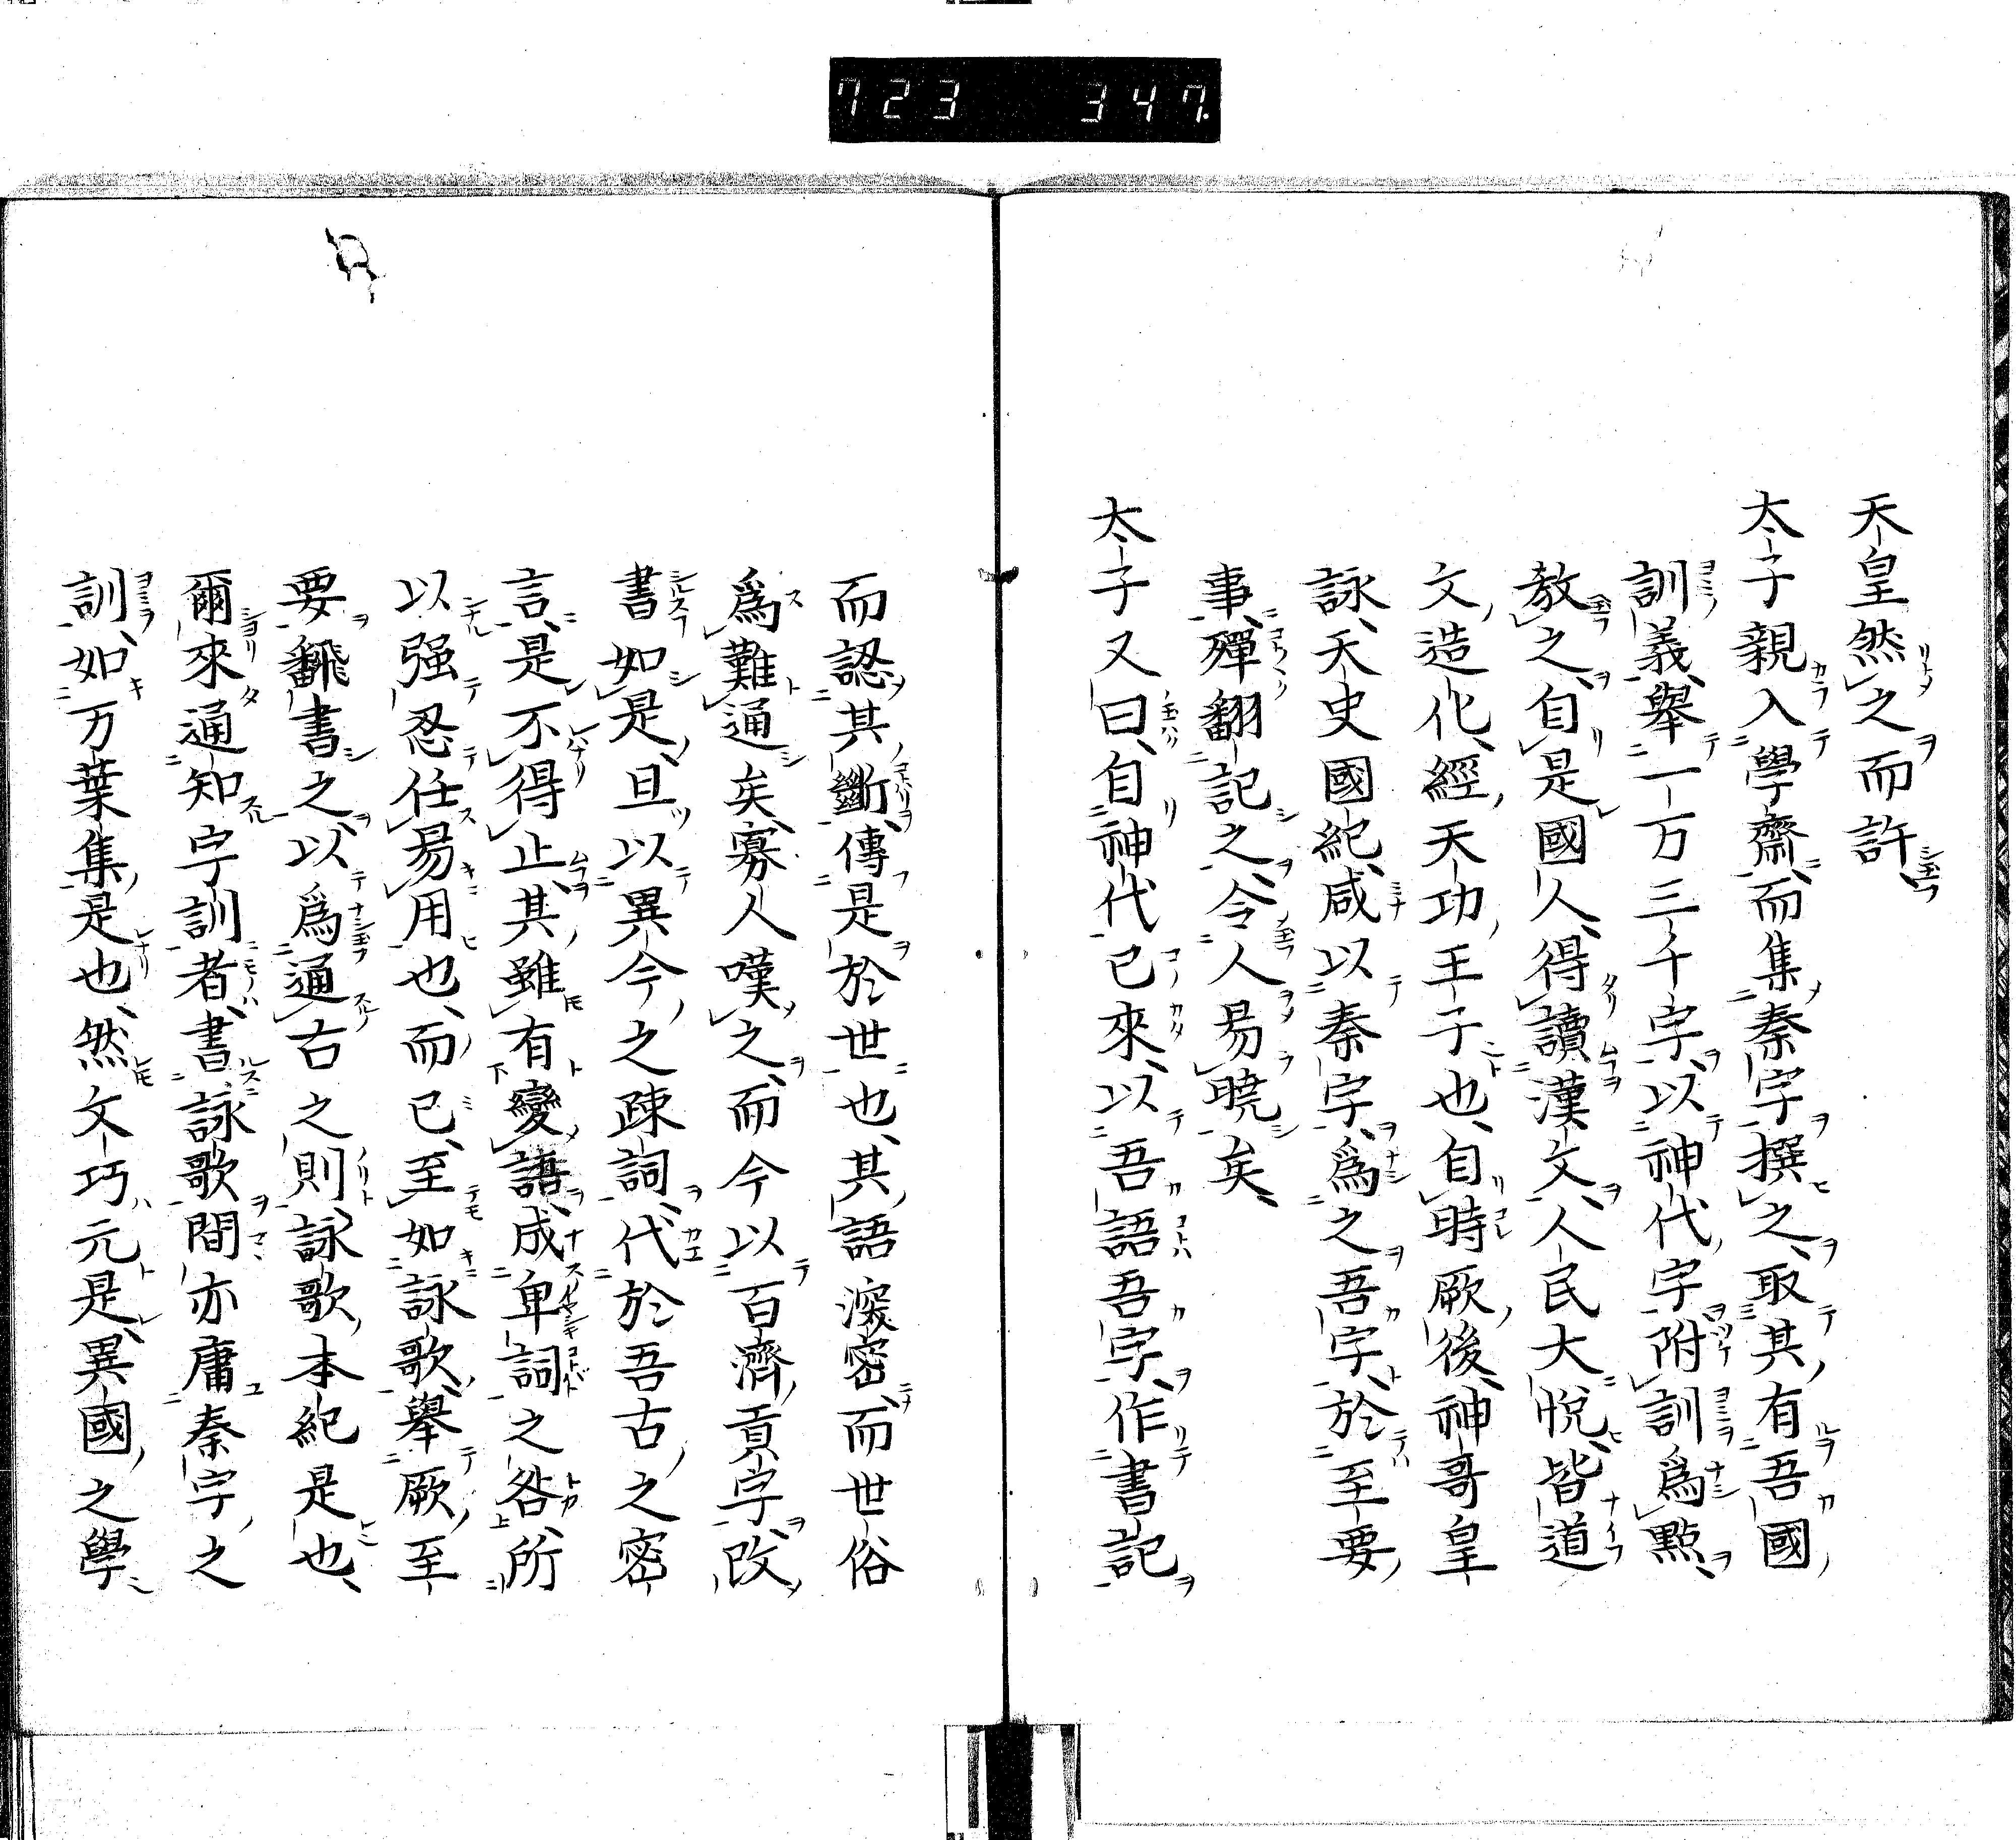 723 347
天皇然之而許
太子親入學齋而集秦字撰之取其有吾國
訓義舉一万三千字以神代字附訓為點
教之自是國人得讀漢文人民大悅皆道
文造化經天功王子也自時厥後神哥皇
詠天史國紀咸以秦字為之吾字於至要
事殫翻記之令人易曉矣
太子又曰自神代已來以吾語吾字作書記
而認其斷傳是於世也其語深密而世俗
爲難通矣寡人嘆之而今以百濟貢字改
書如是且以異今之疎詞代於吾古之密
言是不得止其雖有變語成卑詞之咎所
以强忍任易用也而已至如詠歌舉厥至
要飜書之以爲通古之則詠歌本紀是也
爾來通知字訓者書詠歌間亦庸秦字之
訓如万葉集是也然文巧元是異國之學